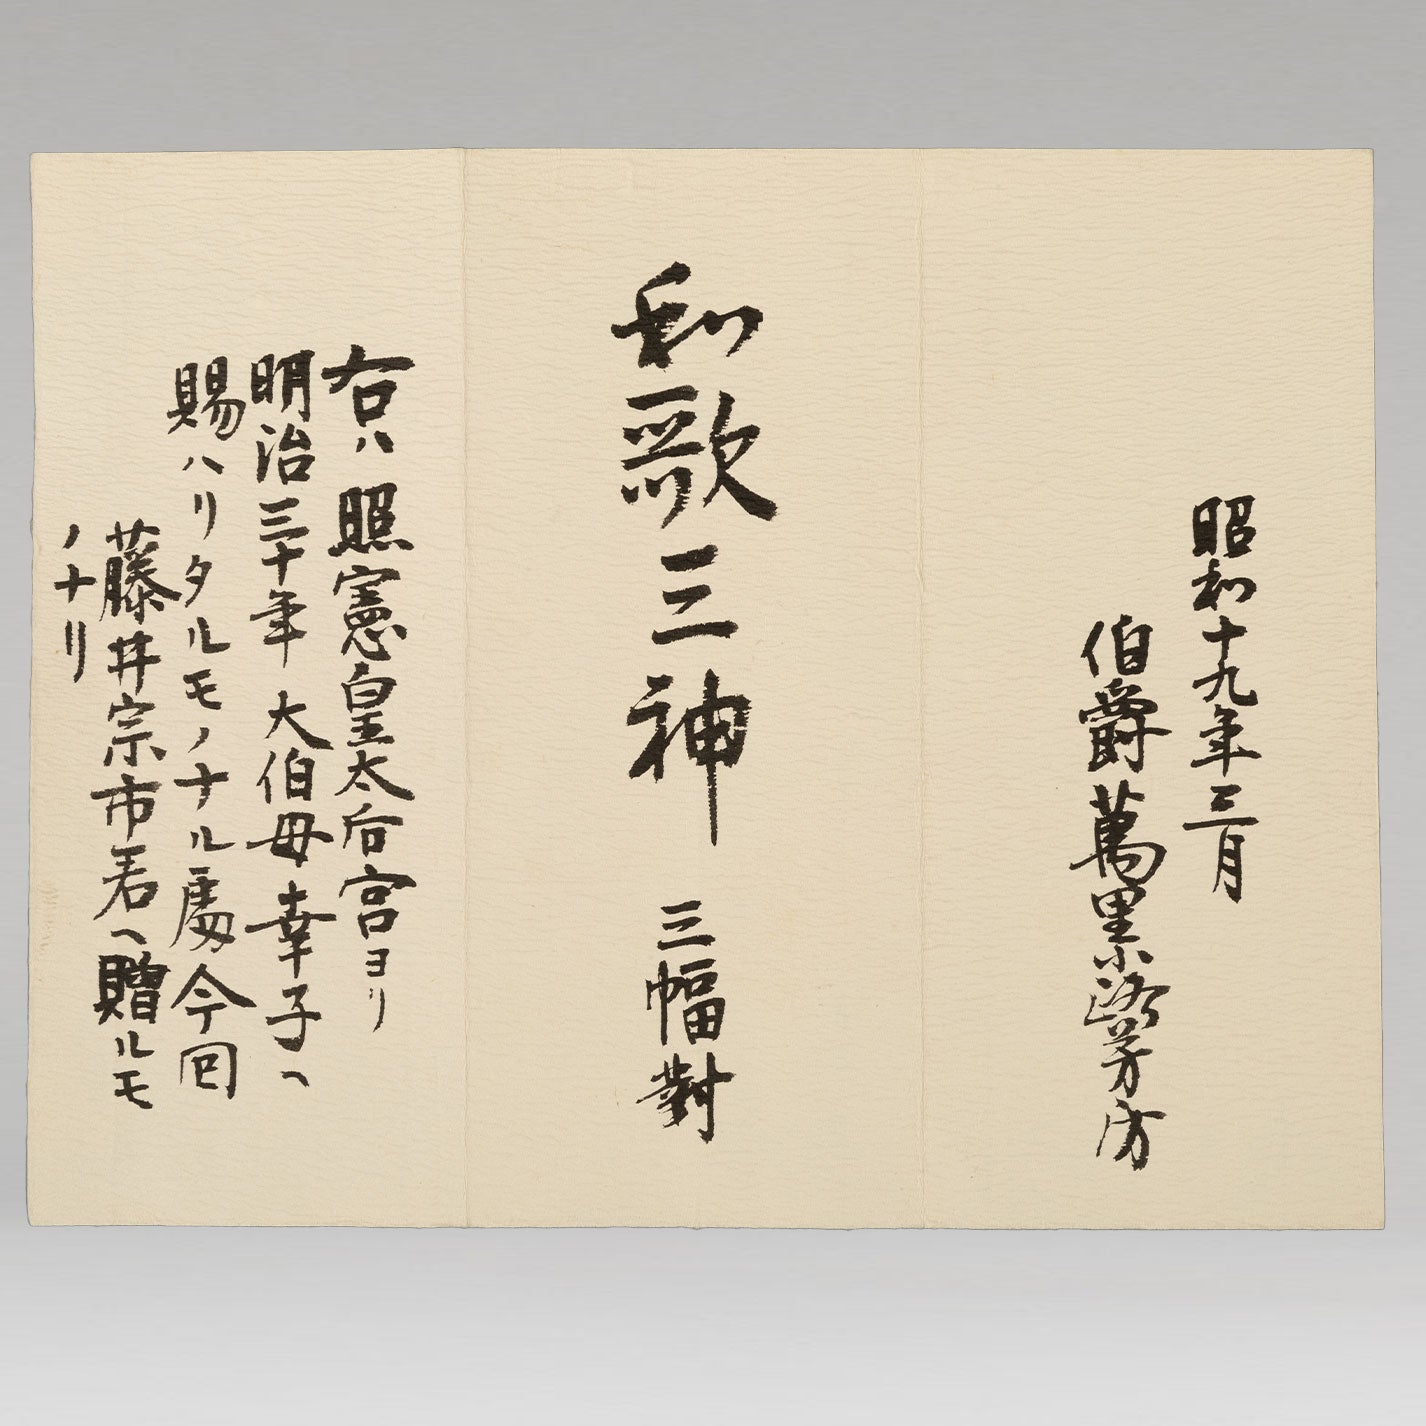 昭和十九年三月
伯爵萬里小路芳房
和歌三神 三幅對
右ハ照憲皇太后宮ヨリ
明治三十年 大伯母幸子ヘ
賜ハリタルモノナル處今回
藤井宗市君ヘ贈ルモ
ノナリ